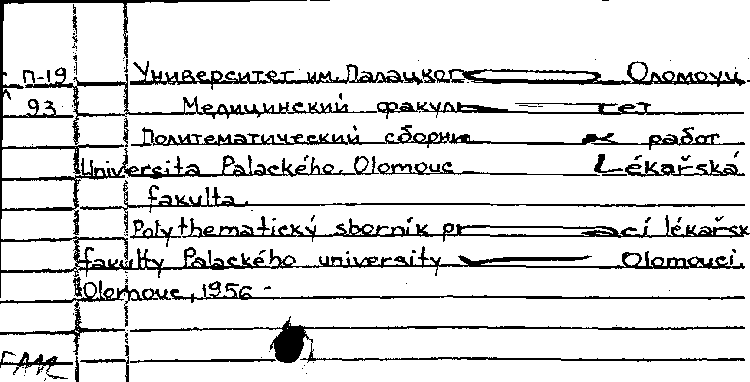 П-19 Университет им. Палацког Оломоуц
93 Медицинский факуль тет
Политематический сборник работ
Universita Palackého. Olomouc Lékařská
fakulta.
Polythematický sborník prací lékařsk
fakulty Palackého university Olomouci.
Olomouc, 1956 -